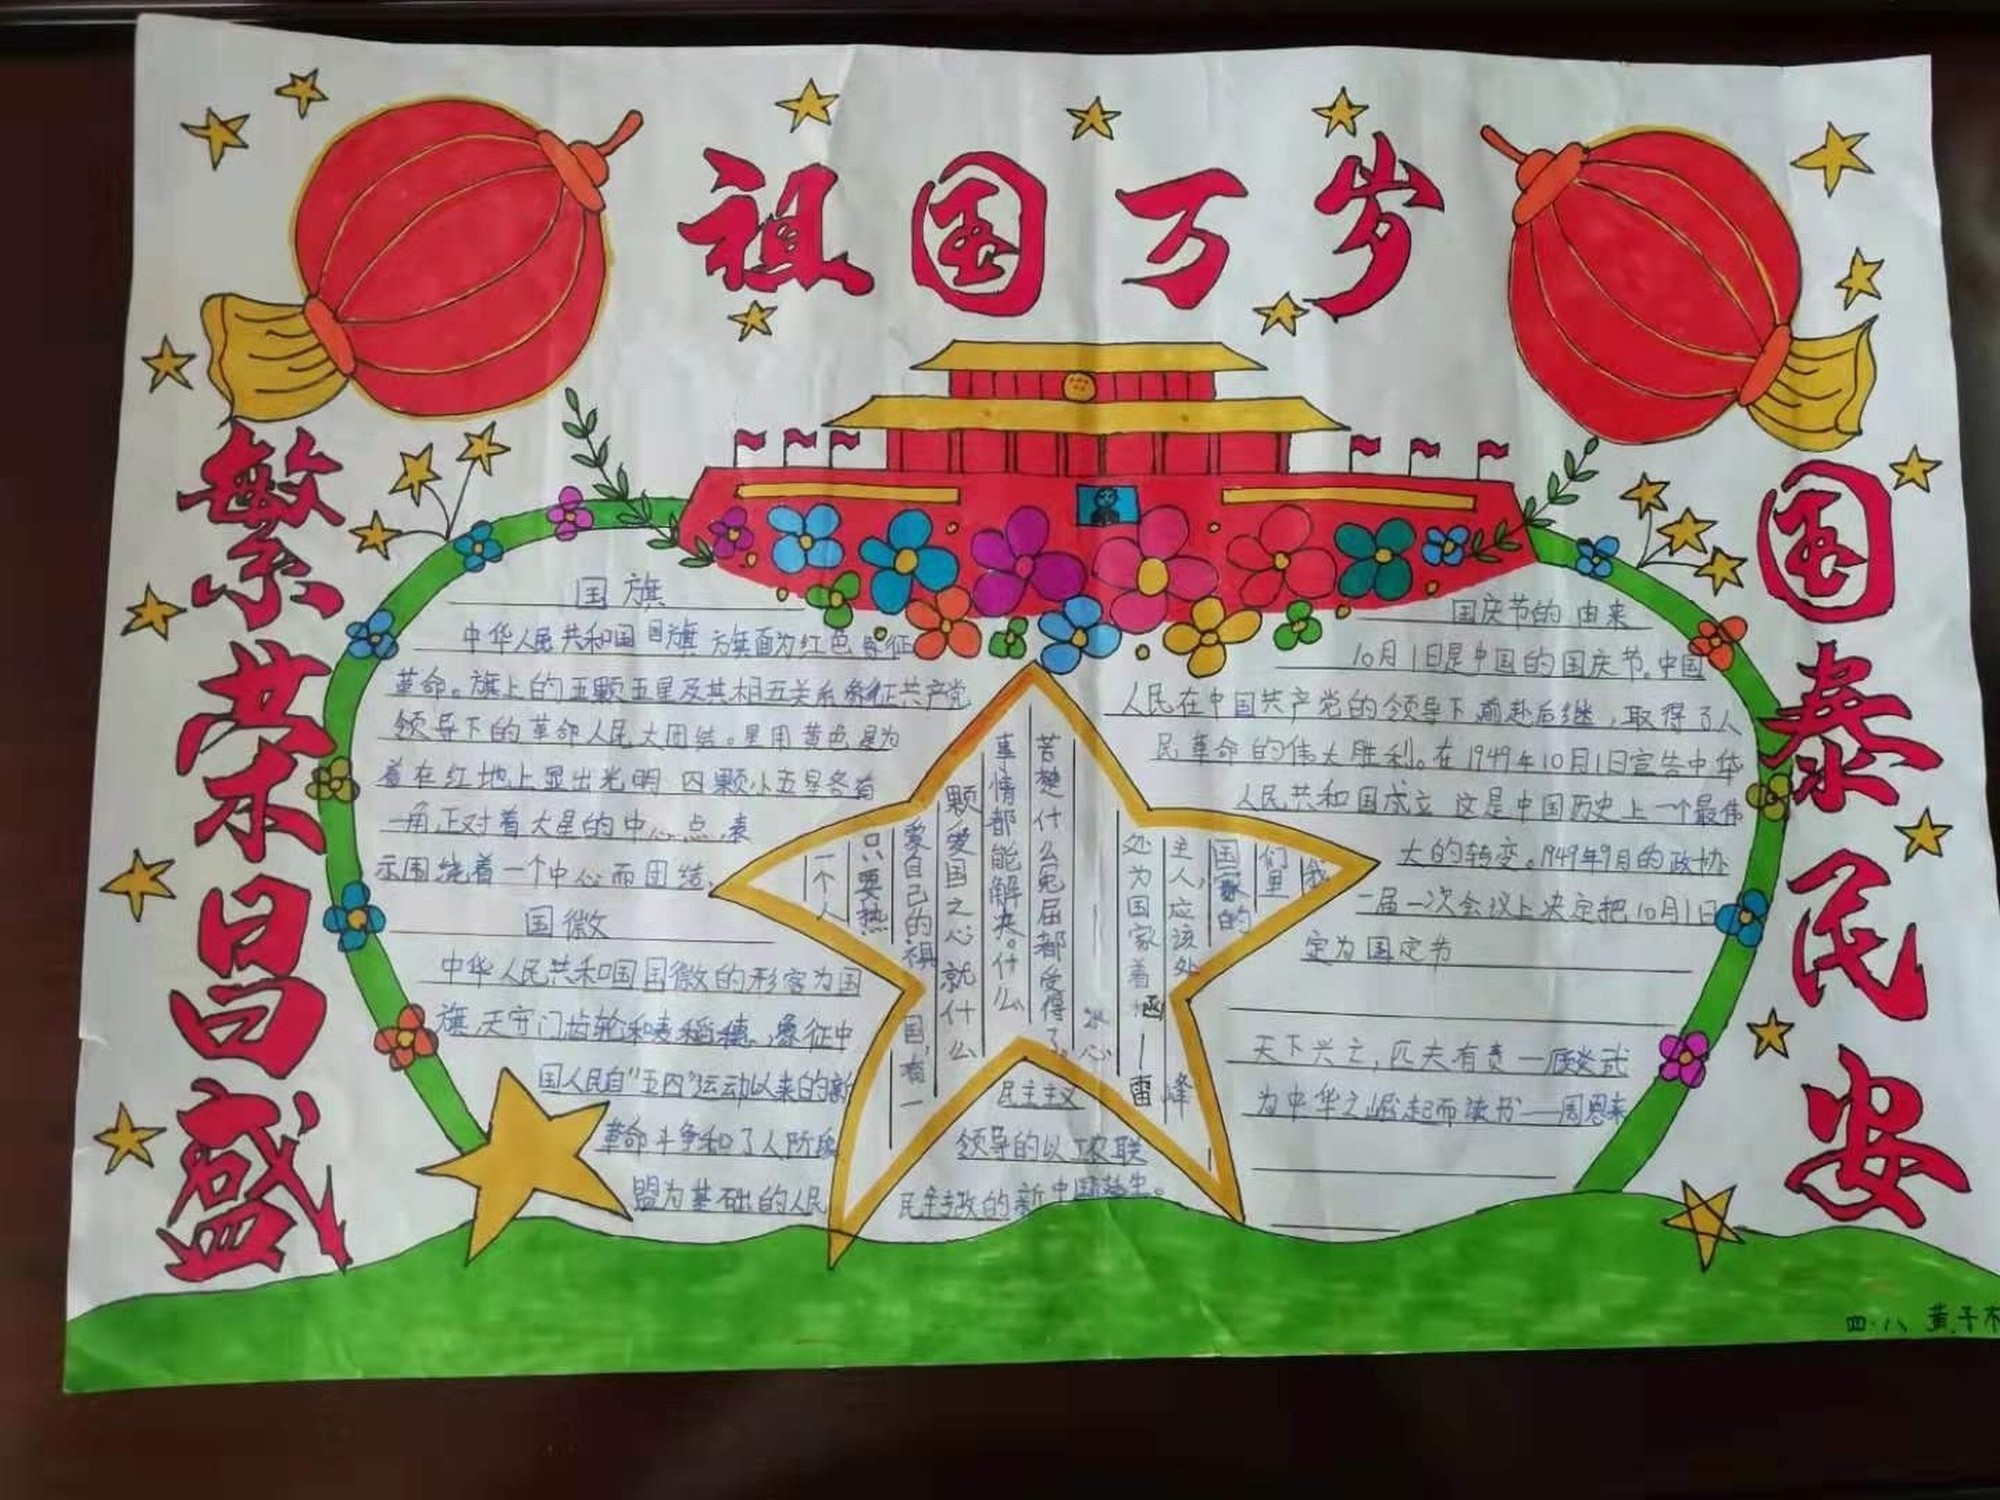 祖国万岁
繁荣昌盛
国泰民安
国旗
中华人民共和国国旗 旗面为红色 象征
革命。旗上的五颗五星及其相互关系象征共产党
领导下的革命人民大团结。星用黄色是为
着在红地上显出光明 四颗小五星各有
一角正对着大星的中心点,表
示围绕着一个中心而团结,
国徽
中华人民共和国国徽的形容为国
旗,天安门齿轮和麦稻穗,象征中
国人民自"五四"运动以来的新
革命斗争和了人阶段
盟为基础的人民
民主主义
领导的以工农联
民主政的新中国诞生。
一个人
只要热
爱自己的祖国,有一
颗爱国之心就什么
事情都能解决。什么
苦楚什么冤屈都受得了。
冰心
我
们里
国家的
主人,应该处
处为国家着
—雷
峰
国庆节的由来
10月1日是中国的国庆节。中国
人民在中国共产党的领导下前赴后继,取得了人
民革命的伟大胜利。在1949年10月1日宣告中华
人民共和国成立 这是中国历史上一个最伟
大的转变。1949年9月的政协
一届一次会议上决定把10月1日
定为国定节
天下兴亡,匹夫有责—顾炎武
为中华之崛起而读书——周恩来
四·八 黄子